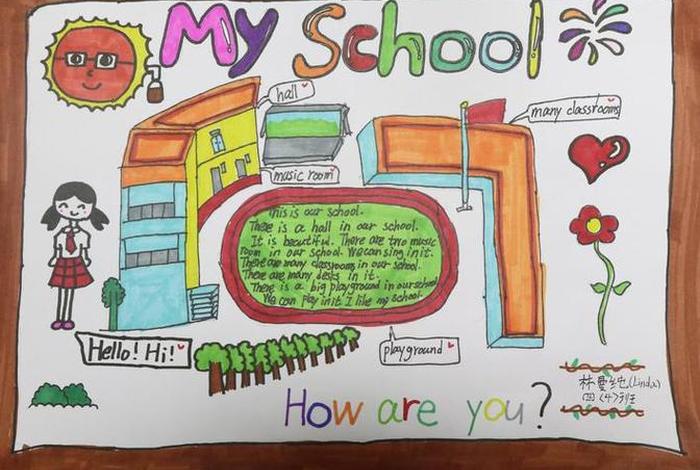 My School
hall
many classrooms
music room
This is our school.
There is a hall in our school.
It is beautiful. There are two music
room in our school. We can sing in it.
There are many classrooms in our school.
There are many desks in it.
There is a big playground in our school
We can play in it. I like my school.
Hello! Hi!
playground
How are you?
林 纯(Linda)
四〈4〉班